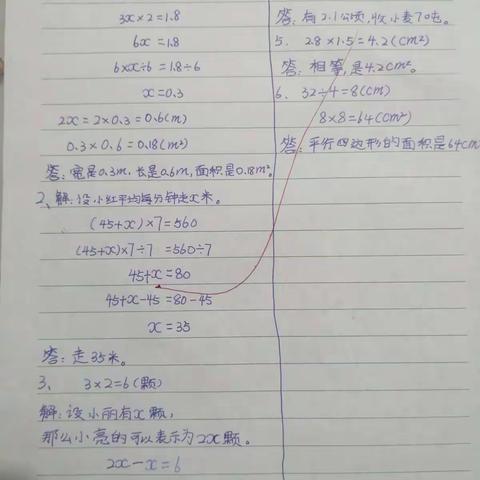 3x×2=1.8
6x=1.8
6x×÷6=1.8÷6
x=0.3
2x=2×0.3=0.6(m)
0.3×0.6=0.18(m²)
答:宽是0.3m,长是0.6m,面积是0.18m²。
2、解:设小红平均每分钟走x米。
(45+x)×7=560
(45+x)×7÷7=560÷7
45+x=80
45+x-45=80-45
x=35
答:走35米。
3、 3×2=6(颗)
解:设小丽有x颗,
那么小亮的可以表示为2x颗。
2x-x=6
答:有2.1公顷,收小麦70吨。
5. 2.8×1.5=4.2(cm²)
答:相等,是4.2cm²。
6、32÷4=8(cm)
8×8=64(cm²)
答:平行四边形的面积是64cm